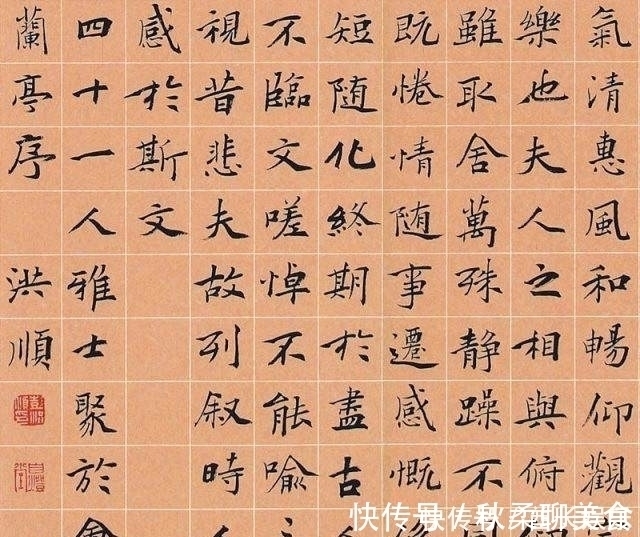 氣清惠風和暢仰觀
樂也夫人之相與俯
雖取舍萬殊靜躁不
既惓情随事遷感慨
短随化終期於盡古
不臨文嗟悼不能喻
視昔悲夫故列叙時
感於斯文
四十一人雅士聚於
蘭亭序 洪順
快传号·秋柔聊美食